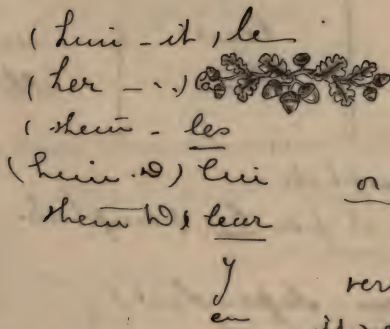 (him - it) le
(her - ..)
(them - les
(him D) lui
them D) leur
y
en